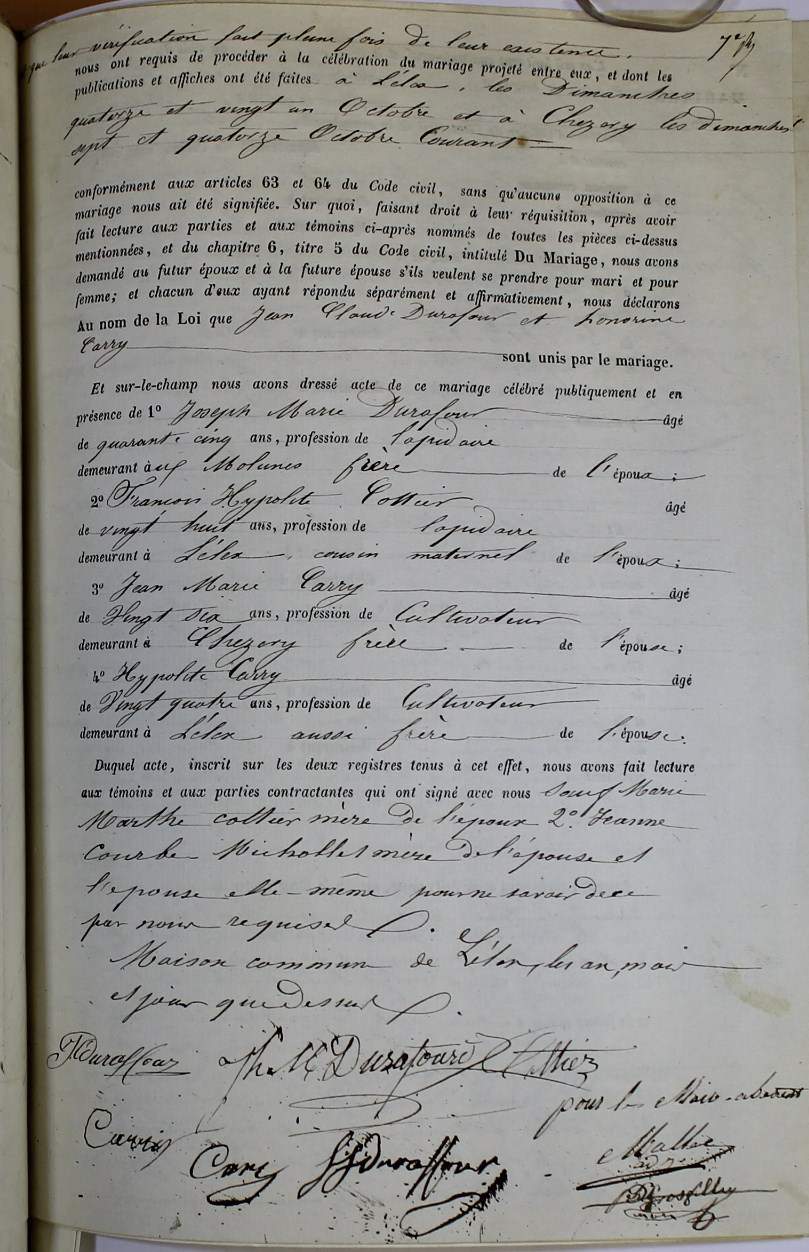 que leur vérification fait pleine fois de leur existence. 7e
nous ont requis de procéder à la célébration du mariage projeté entre eux, et dont les
publications et affiches ont été faites à Lélex, les Dimanches
quatorze et vingt un Octobre et à Chezery les dimanches
sept et quatorze Octobre Courant
conformément aux articles 63 et 64 du Code civil, sans qu'aucune opposition à ce
mariage nous ait été signifiée. Sur quoi, faisant droit à leur réquisition, après avoir
fait lecture aux parties et aux témoins ci-après nommés de toutes les pièces ci-dessus
mentionnées, et du chapitre 6, titre 5 du Code civil, intitulé Du Mariage, nous avons
demandé au futur époux et à la future épouse s'ils veulent se prendre pour mari et pour
femme; et chacun d'eux ayant répondu séparément et affirmativement, nous déclarons
Au nom de la Loi que Jean Claude Durafour et honorine
Carry sont unis par le mariage.
Et sur-le-champ nous avons dressé acte de ce mariage célébré publiquement et en
présence de 1º Joseph Marie Durafour âgé
de quarante cinq ans, profession de lapidaire
demeurant à ux Molunes frère de l'époux;
2º François Hypolite Cottier âgé
de vingt huit ans, profession de lapidaire
demeurant à Lélex, cousin maternel de l'époux;
3º Jean Marie Carry âgé
de Vingt six ans, profession de Cultivateur
demeurant à Chezery frère de l'épouse;
4º Hypolite Carry âgé
de Vingt quatre ans, profession de Cultivateur
demeurant à Lélex aussi frère de l'épouse.
Duquel acte, inscrit sur les deux registres tenus à cet effet, nous avons fait lecture
aux témoins et aux parties contractantes qui ont signé avec nous Sauf Marie
Marthe cottier mère de l'époux 2º. Jeanne
Courbe Michollet mère de l'épouse et
l'épouse elle-même pour ne savoir de ce
par nous requises.
Maison commune de Lélex, les an, mois
et jour que dessus.
JC Duraffour Jh. M. Durafour Cottier
pour le Maire absent
Carry Cary Duraffour
Grosfilley